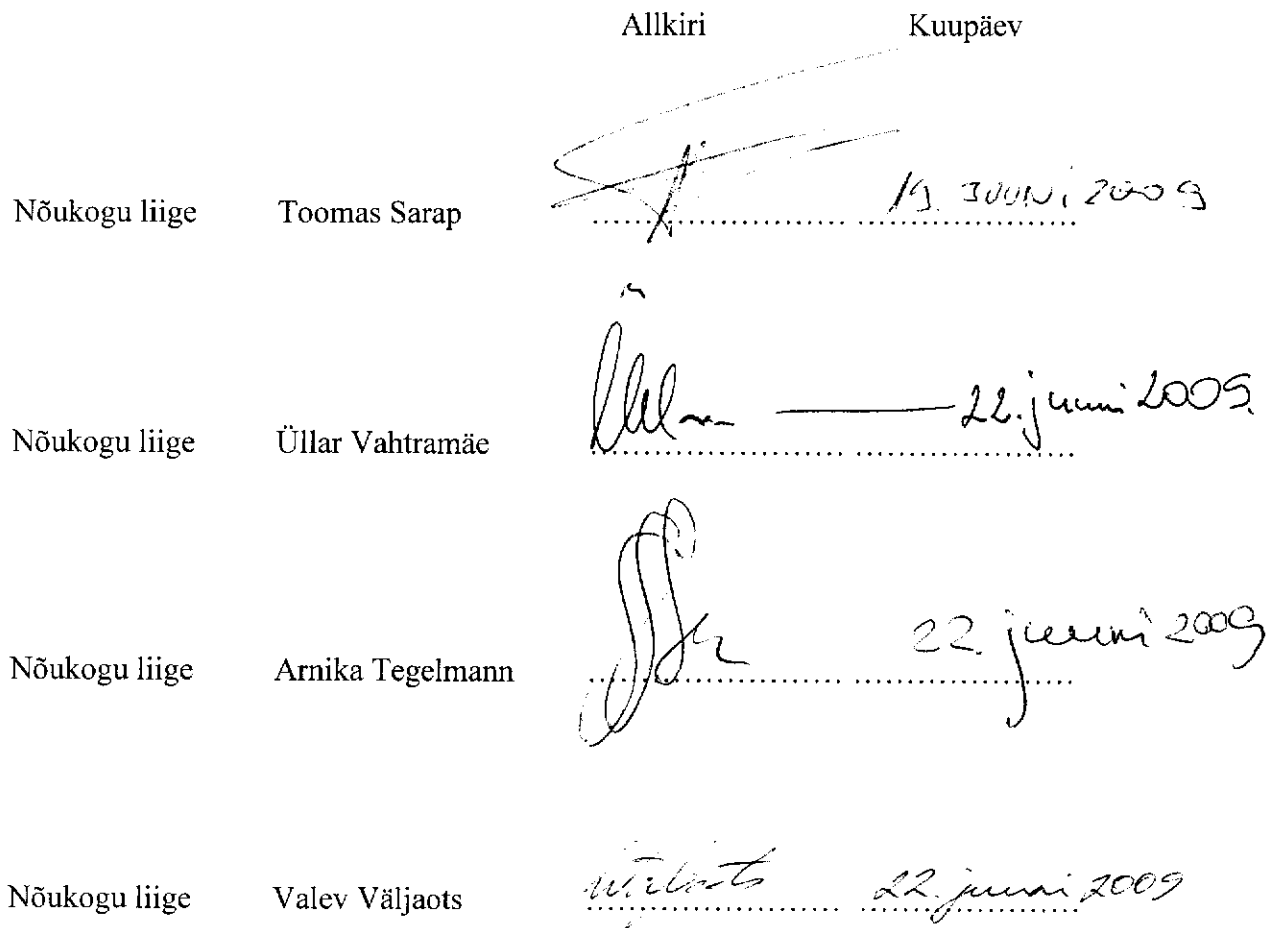 Allkiri Kuupäev
Nõukogu liige Toomas Sarap 19. JUUNI 2009
Nõukogu liige Üllar Vahtramäe 22. juuni 2009.
Nõukogu liige Arnika Tegelmann 22. juuni 2009
Nõukogu liige Valev Väljaots 22. juuni 2009